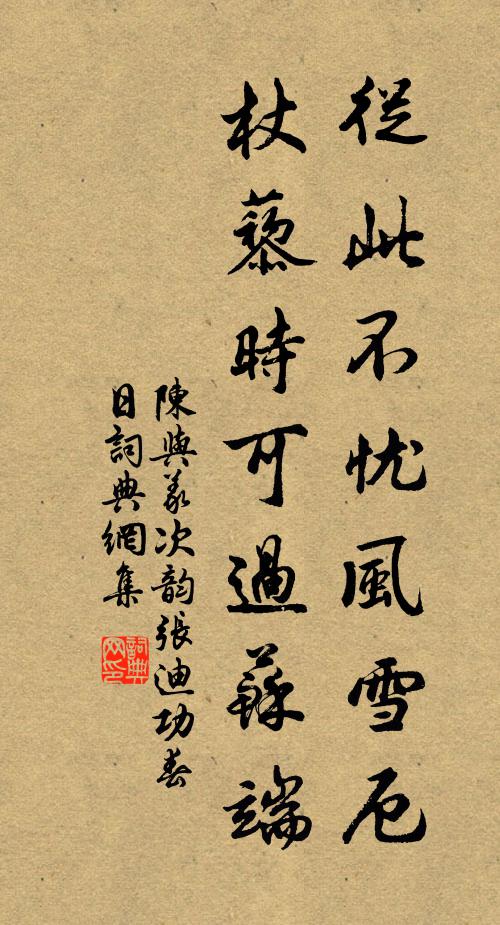 從此不忧風雪厄
杖藜時可過蘇端
陳與義次韵張迪功春
日詞典網集
詞典
网印